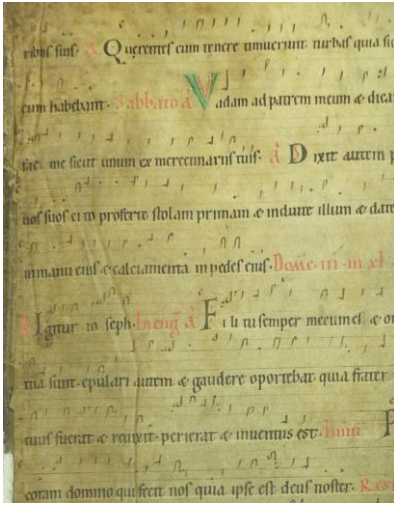 ribus suis. A Querentes eum tenere timuerunt turbas quia sic
eum habebant. Sabbato A Vadam ad patrem meum & dica
fac me sicut unum ex mercennariis tuis. A Dixit autem p
nos suos cito proferte stolam primam & induite illum & date
in manu eius & calciamenta in pedes eius. Domc. iii. in xl
Igitur io seph. In eug A Fili tu semper mecum es & o
tua sunt. epulari autem & gaudere oportebat quia frater
tuus fuerat & reuixit. perierat & inuentus est.
coram domino qui fecit nos quia ipse est deus noster.